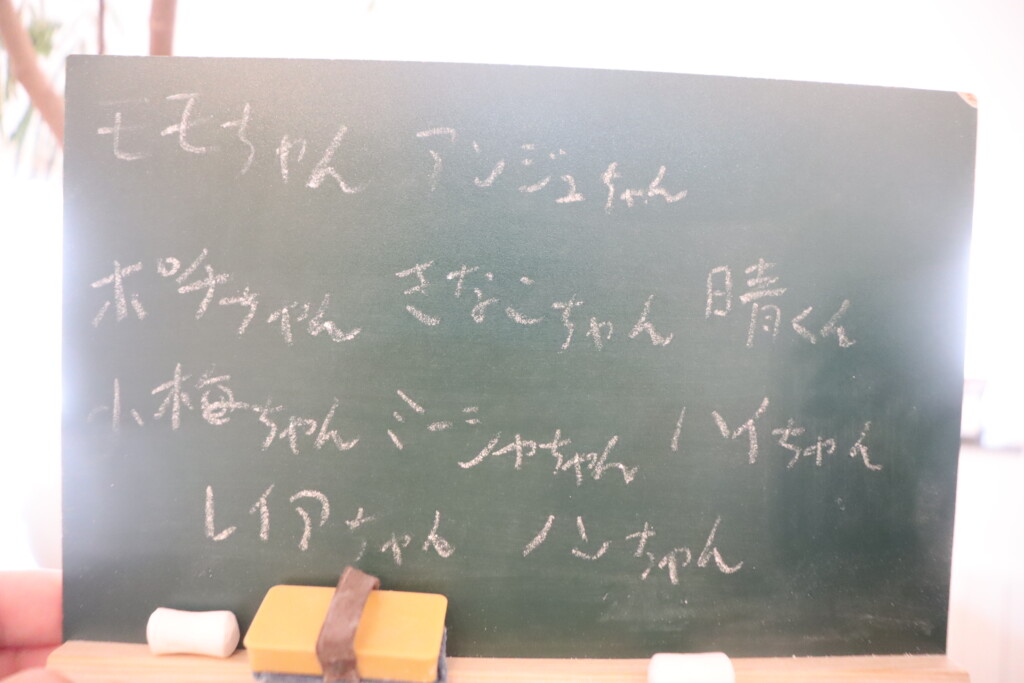 モモちゃん アンジュちゃん
ポチちゃん きなこちゃん 晴くん
小梅ちゃん ミーシャちゃん ハイちゃん
レイアちゃん ノンちゃん